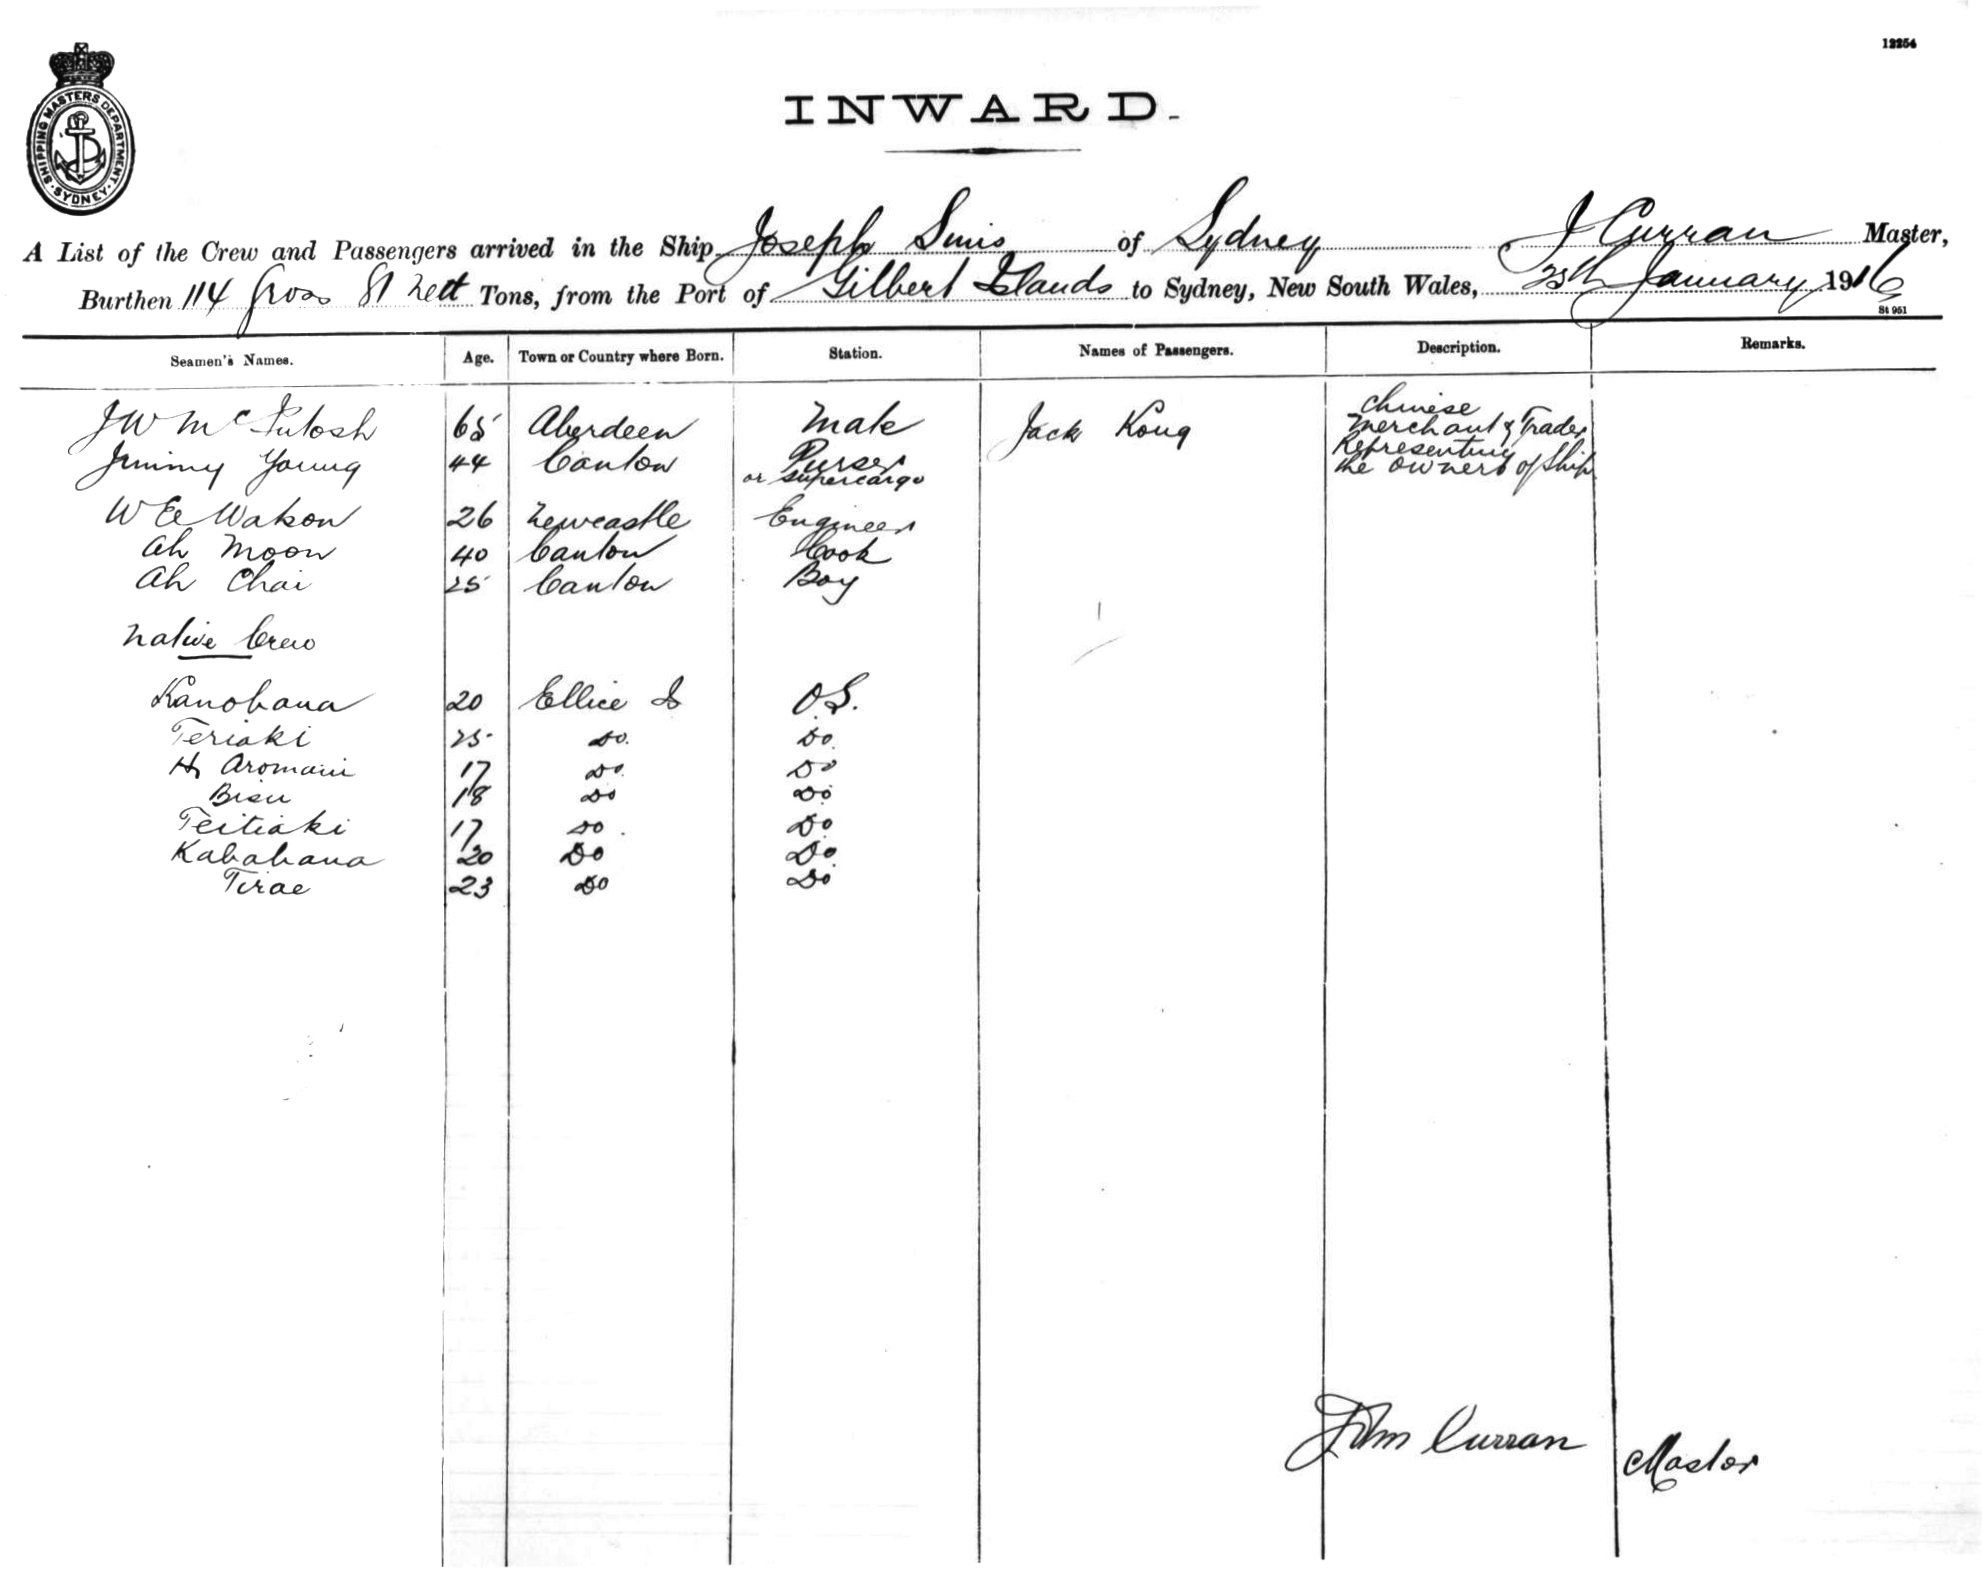 12254
SHIPPING MASTERS DEPARTMENT · SYDNEY ·
INWARD.
A List of the Crew and Passengers arrived in the Ship Joseph Sims of Sydney J Curran Master,
Burthen 114 Gross 81 Nett Tons, from the Port of Gilbert Islands to Sydney, New South Wales, 25th January 1916
St 951
Seamen's Names. Age. Town or Country where Born. Station. Names of Passengers. Description. Remarks.
J W McIntosh 65 Aberdeen Mate Jack Kong Chinese Merchant & Trader
Jimmy Young 44 Canton Purser or Supercargo Representing the owners of Ship
W E Watson 26 Newcastle Engineer
Ah Moon 40 Canton Cook
Ah Chai 25 Canton Boy
Native Crew
Kanobana 20 Ellice Is O.S.
Teriaki 25 Do. Do.
H Aromain 17 Do. Do
Bisu 18 Do Do
Teitiaki 17 Do. Do
Kabahana 20 Do Do.
Tirae 23 Do Do
John Curran Master